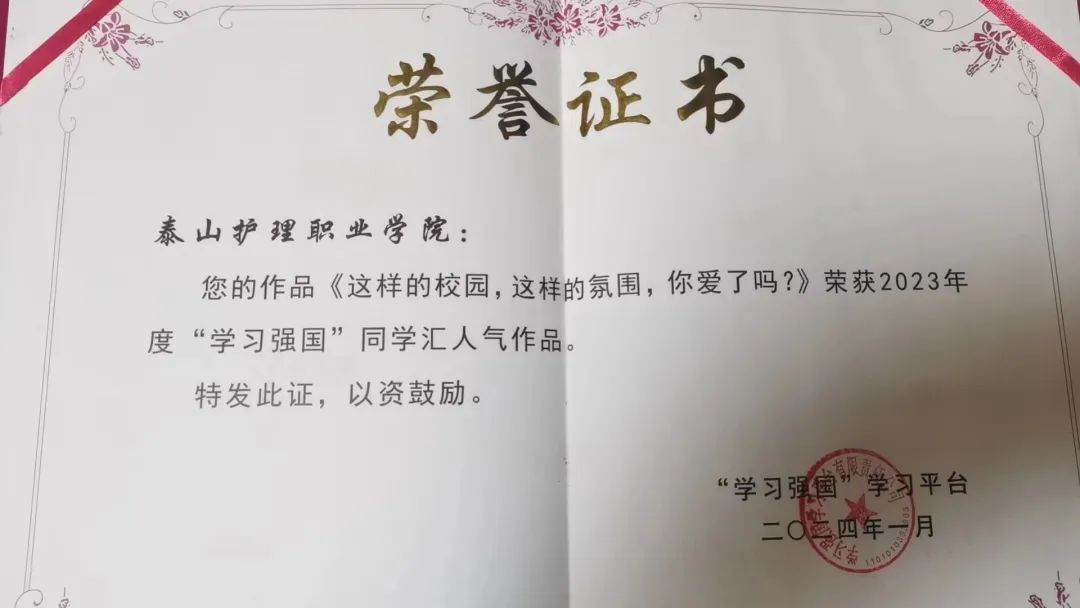 荣誉证书
泰山护理职业学院：
您的作品《这样的校园，这样的氛围，你爱了吗？》荣获2023年
度“学习强国”同学汇人气作品。
特发此证，以资鼓励。
“学习强国”学习平台
二〇二四年一月